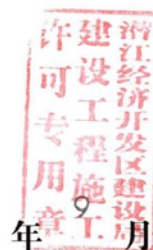 潜江经济开发区建设局
建设工程施工
许可专用章
年 9 月